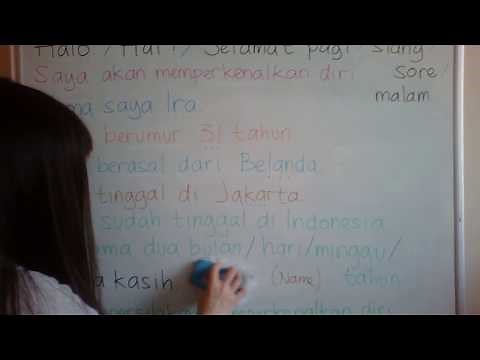 Halo! / Hai! / Selamat pagi siang
Saya akan memperkenalkan diri sore/
malam
ma saya Ira
berumur 31 tahun
berasal dari Belanda
tinggal di Jakarta
sudah tinggal di Indonesia
ma dua bulan/hari/minggu/
a kasih (Name) tahun
memperkenalkan diri